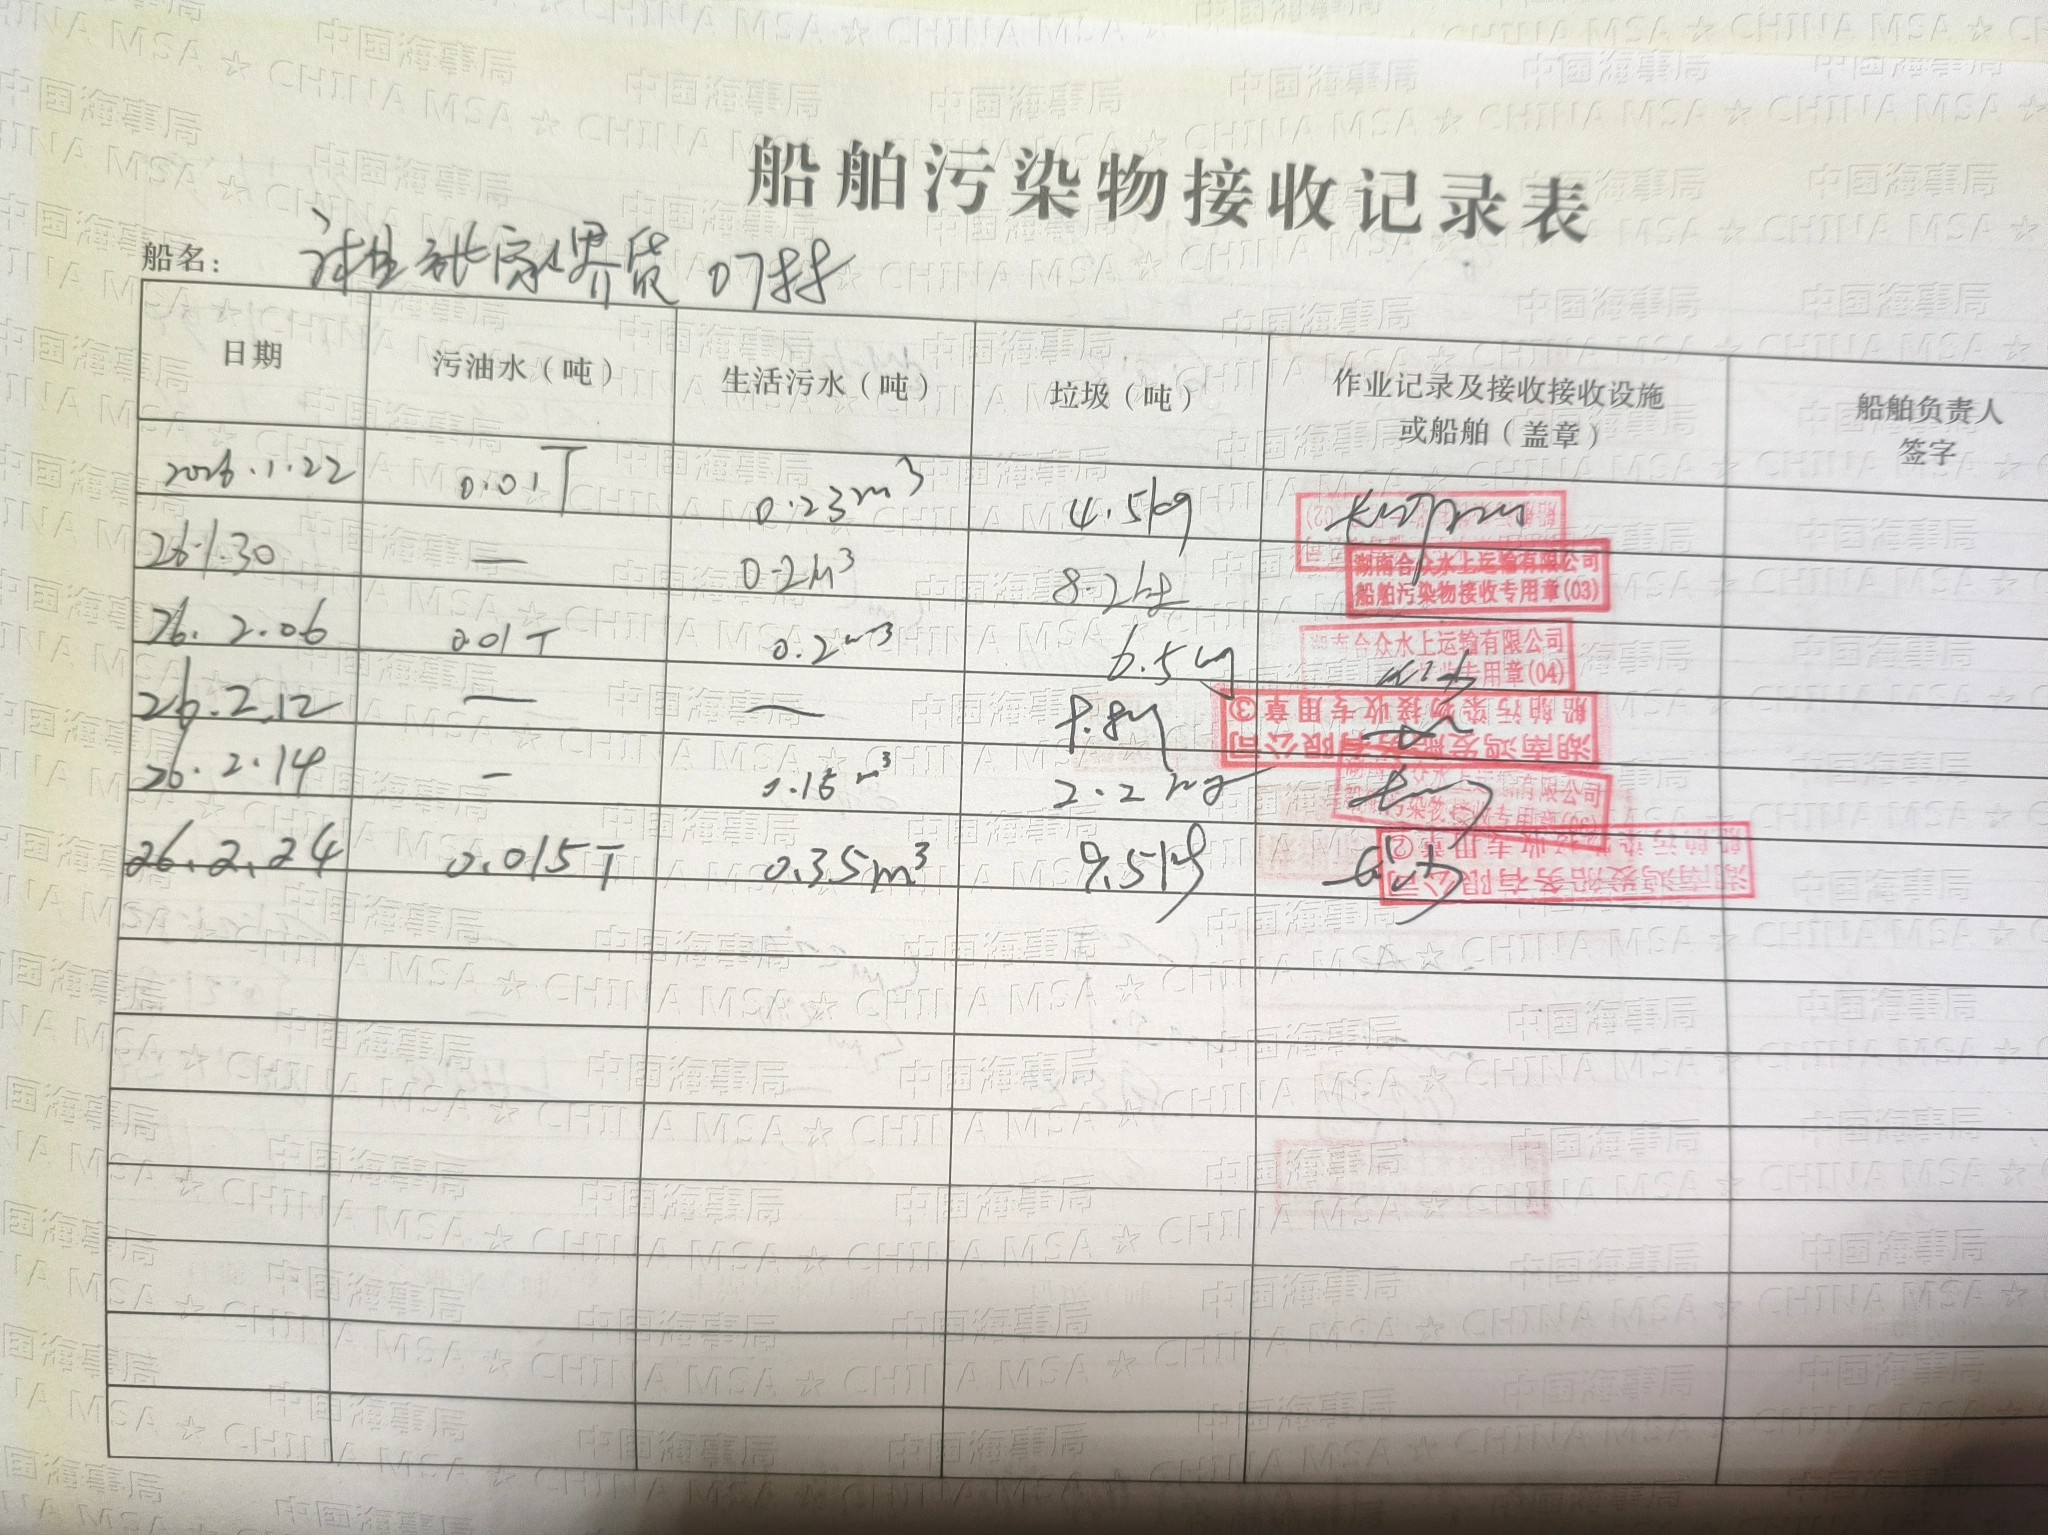 船舶污染物接收记录表
船名: 张家界货0788
日期 污油水（吨） 生活污水（吨） 垃圾（吨） 作业记录及接收接收设施或船舶（盖章） 船舶负责人签字
2026.1.22 0.01T 0.23m³ 4.5kg
26.1.30 — 0.2M³ 8.2kg
湖南合众水上运输有限公司
船舶污染物接收专用章(03)
26.2.06 0.01T 0.2m³ 6.5kg
合众水上运输有限公司
专用章(04)
26.2.12 — —
船舶污染物接收专用章③
湖南鸿发船务有限公司
26.2.14 — 0.15m³ 2.2kg
26.2.24 0.015T 0.35m³ 9.5kg
船舶污染物接收专用章②
湖南鸿发船务有限公司
中国海事局
CHINA MSA